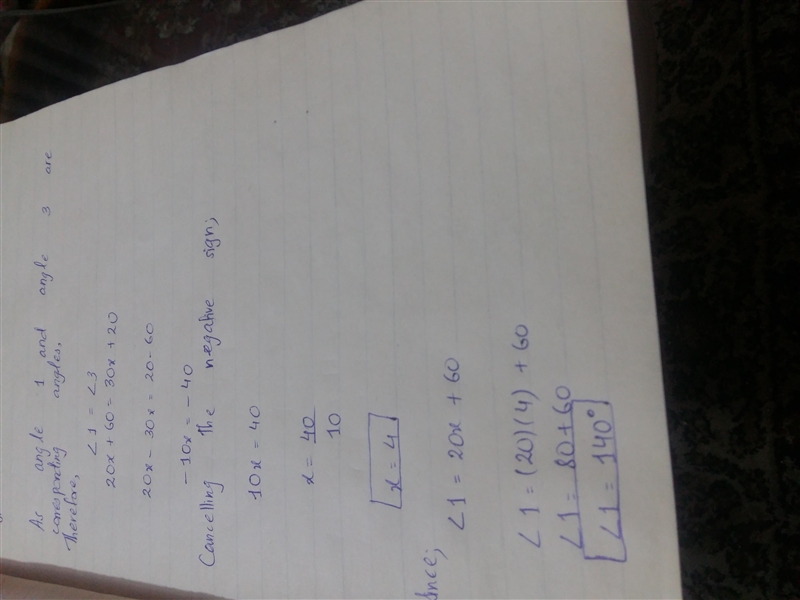 As angle 1 and angle 3 are
corresponding angles.
Therefore,
∠1 = ∠3
20x + 60 = 30x + 20
20x - 30x = 20 - 60
-10x = -40
Cancelling the negative sign;
10x = 40
x = 40/10
x = 4
∠1 = 20x + 60
∠1 = (20)(4) + 60
∠1 = 80 + 60
∠1 = 140°